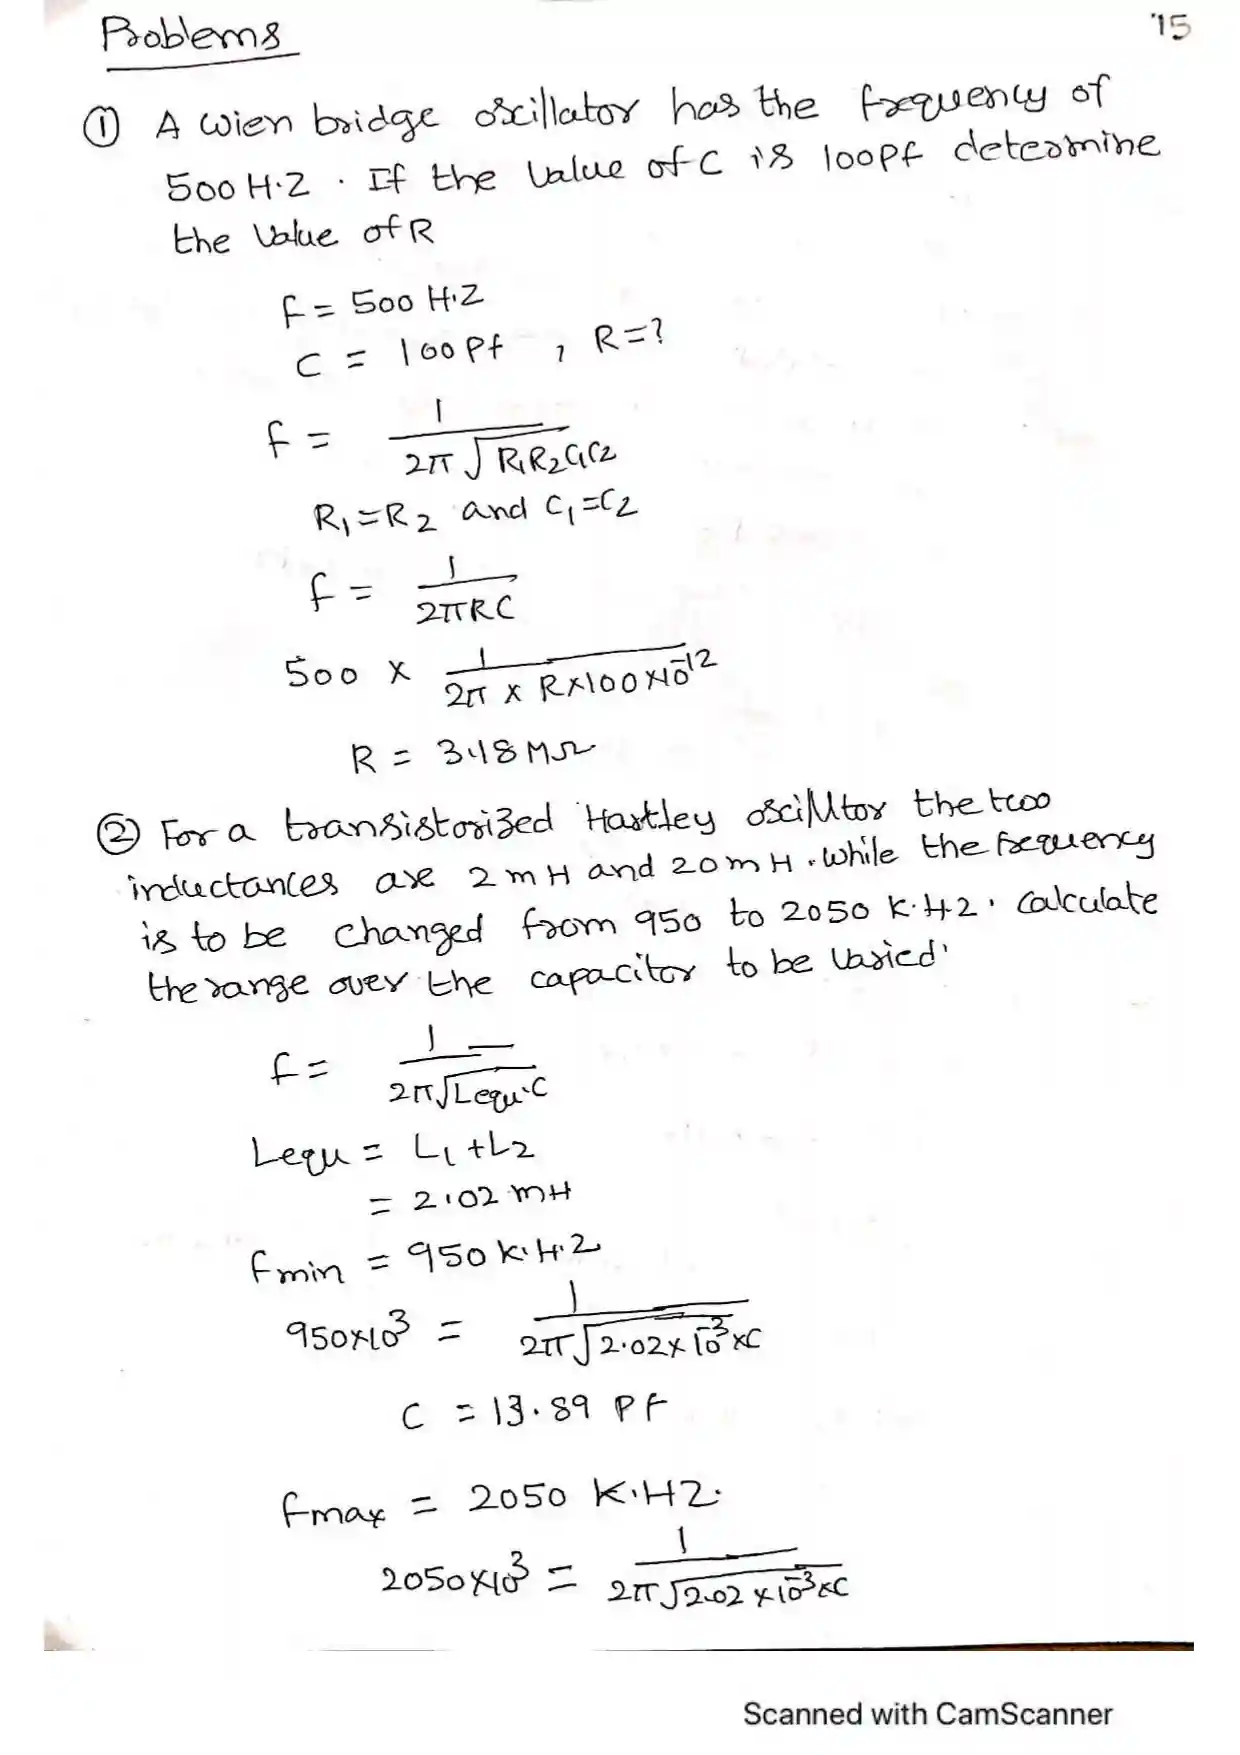 Problems
75
① A wien bridge oscillator has the frequency of
500 H.Z . If the value of C is 100pf determine
the value of R
f = 500 H.Z
C = 100 Pf , R = ?
f = 1 / 2π √R1R2C1C2
R1 = R2 and C1 = C2
f = 1 / 2πRC
500 × 1 / 2π × R×100×10^-12
R = 3.18 MΩ
② For a transistorized Hartley oscilltor the two
inductances are 2mH and 20mH. while the frequency
is to be changed from 950 to 2050 K.H.Z. Calculate
the range over the capacitor to be varied.
f = 1 / 2π√Lequ.C
Lequ = L1 + L2
= 2.02 mH
fmin = 950 K.H.Z
950×10^3 = 1 / 2π√2.02×10^-3×C
C = 13.89 PF
fmax = 2050 K.HZ.
2050×10^3 = 1 / 2π√2.02×10^-3×C
Scanned with CamScanner